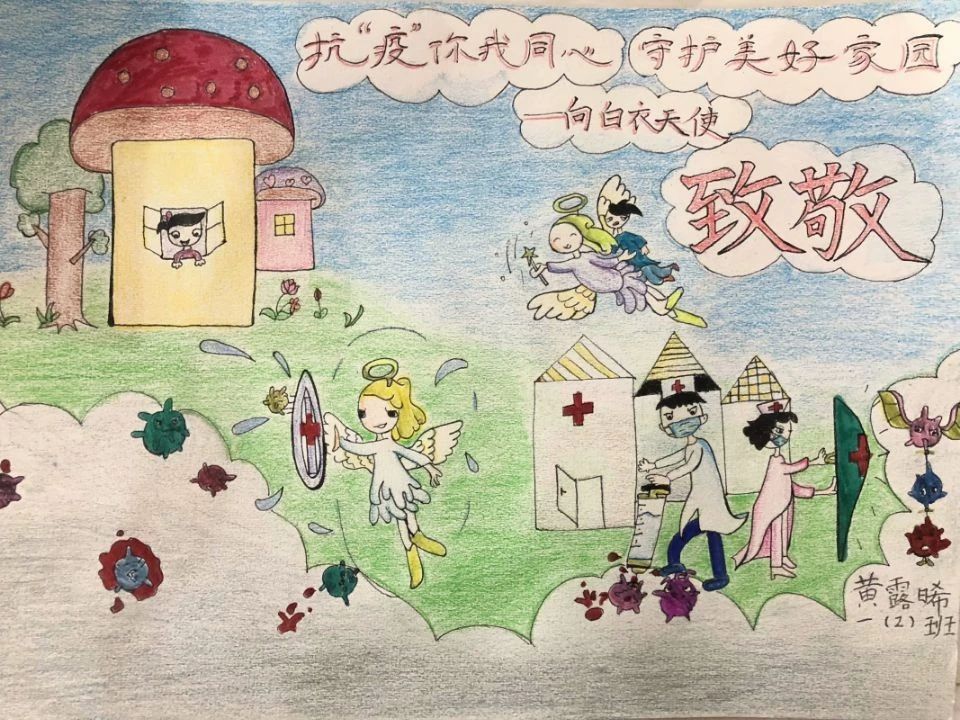 抗“疫”你我同心 守护美好家园
—向白衣天使
致敬
黄露晞
一(2)班